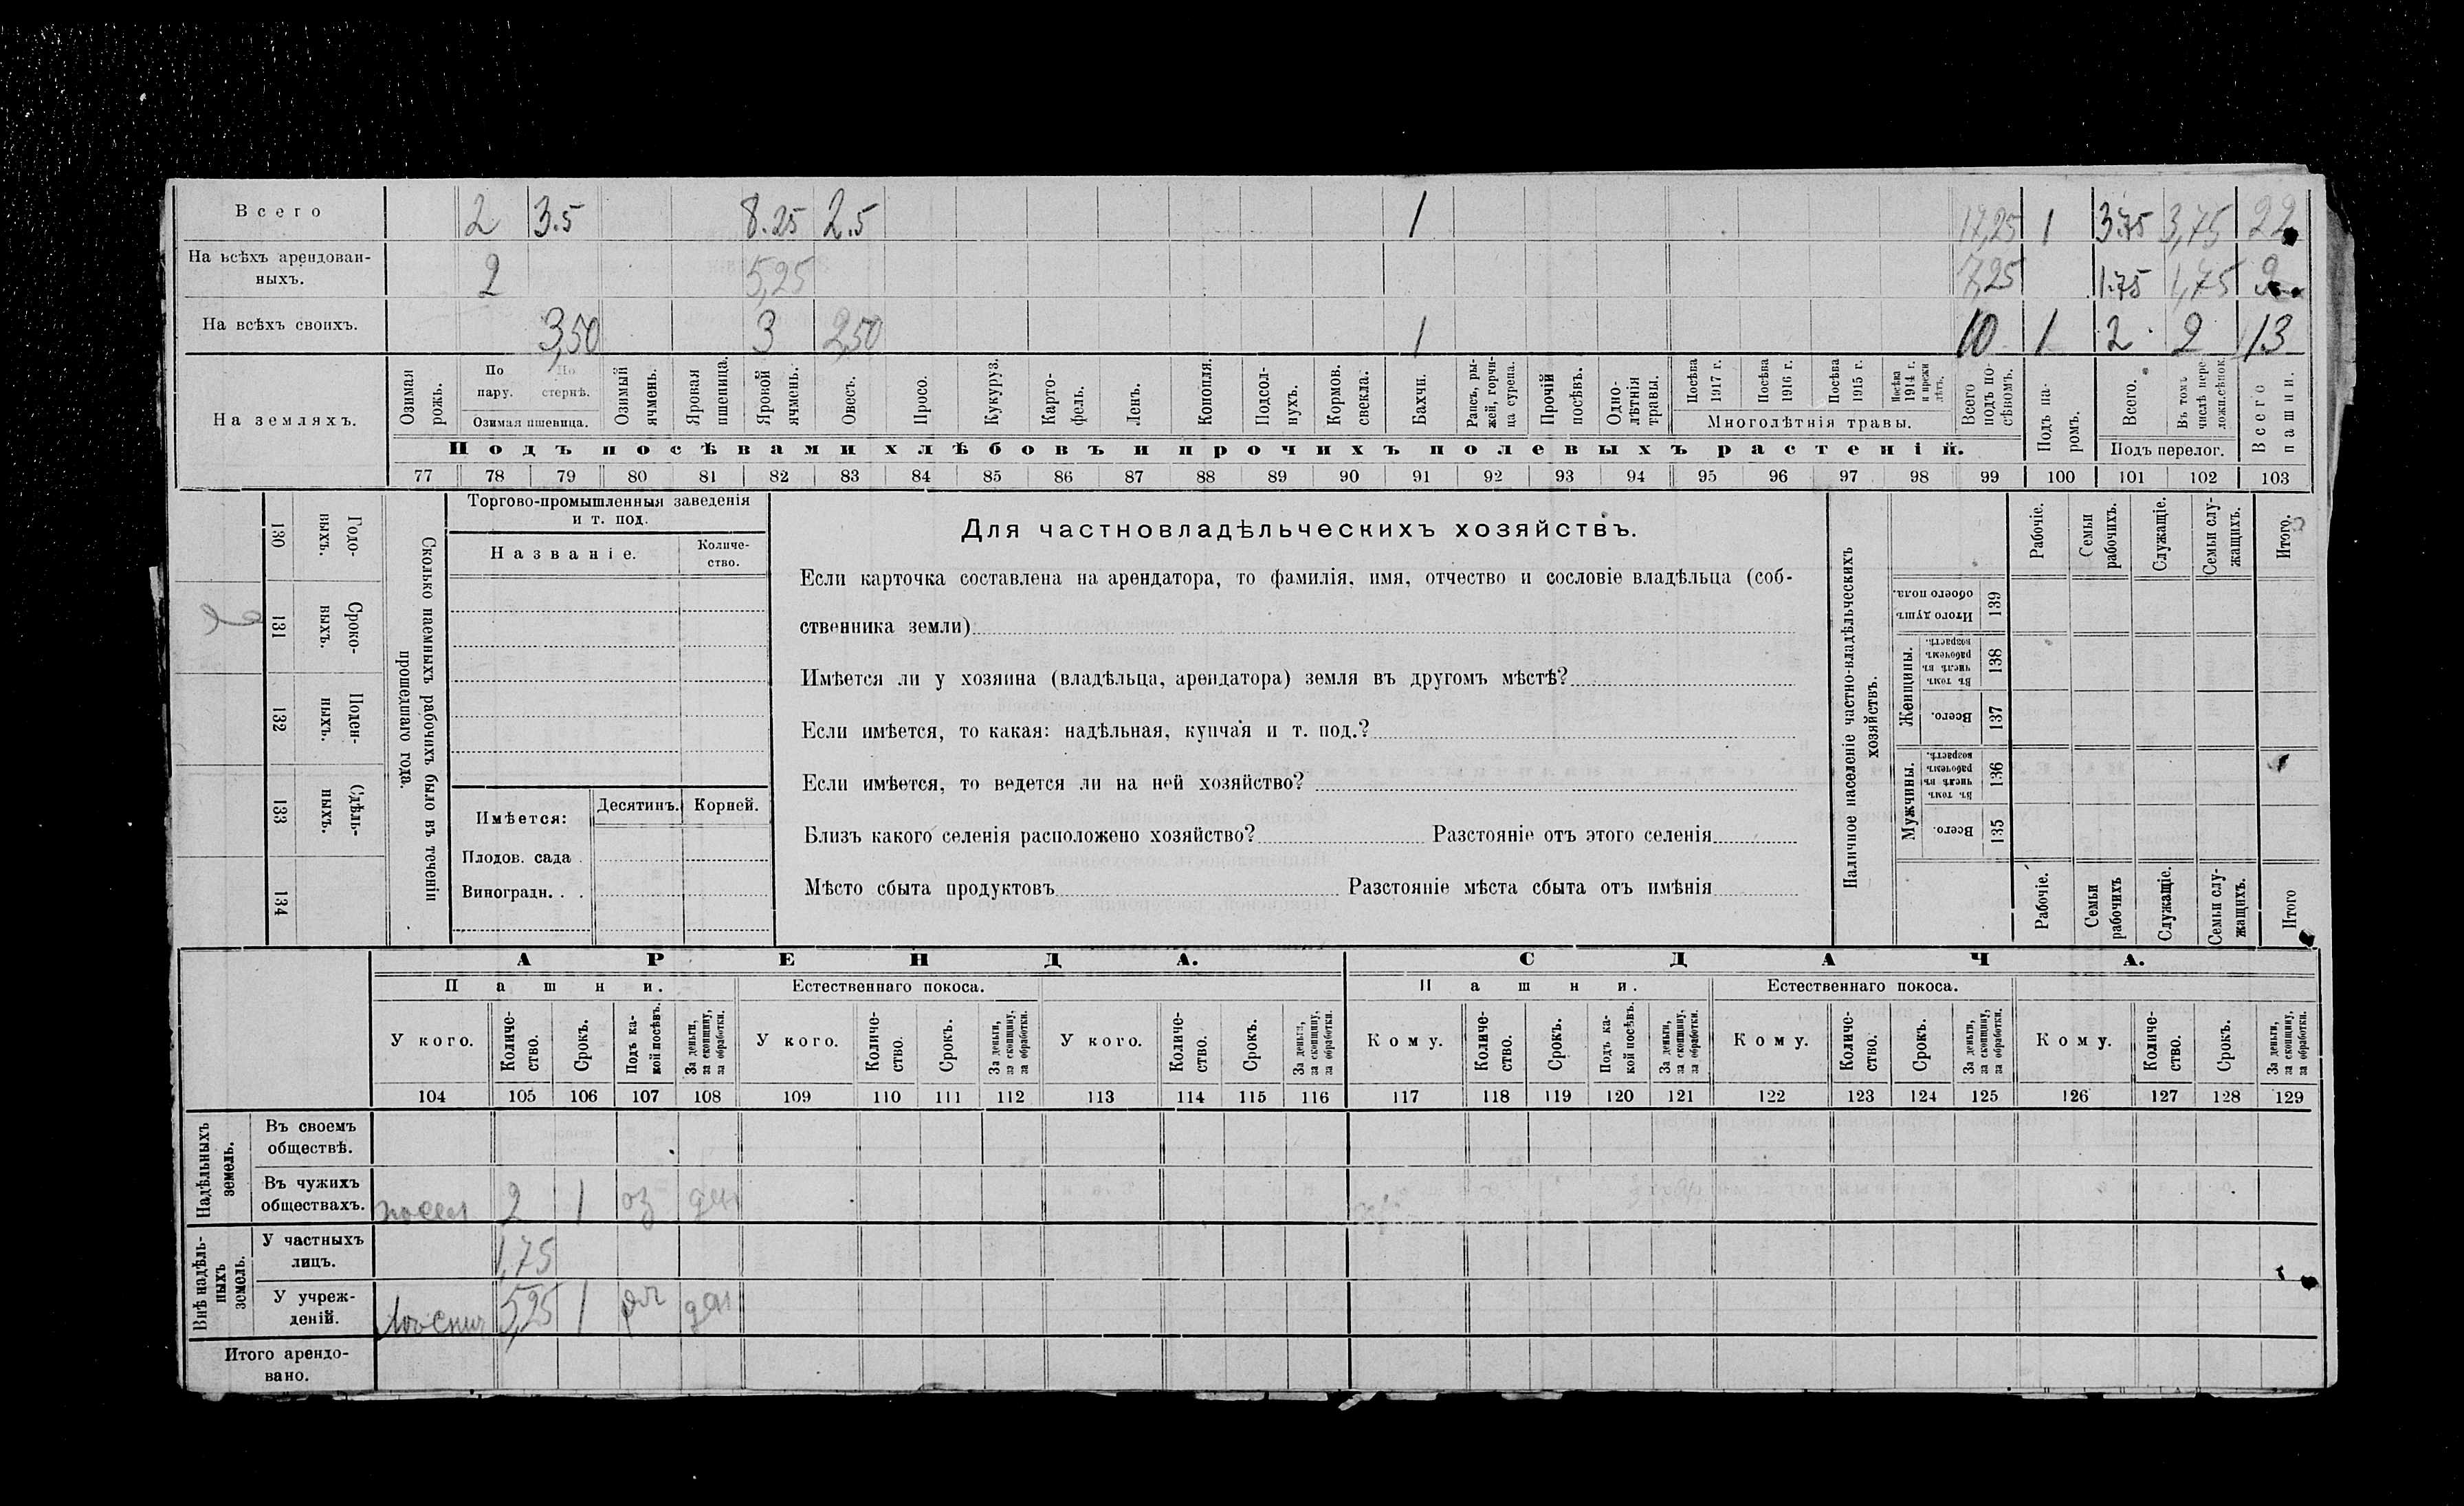 Всего 2 3.5 8.25 2.5 1 17,25 1 3.75 3,75 22
На всѣхъ арендован-
ныхъ. 2 5,25 7,25 1.75 1,75
На всѣхъ своихъ. 3,50 3 2,50 1 10 1 2 2 13
На земляхъ.
Озимая рожь.
По пару.
По стернѣ.
Озимая пшевица.
Озимый ячмень.
Яровая пшеница.
Яровой ячмень.
Овесъ.
Просо.
Кукуруз.
Карто-
фель.
Ленъ.
Конопля.
Подсол-
нухъ.
Кормов.
свекла.
Бахчи.
Рапсъ, ры-
жей, горчи-
ца сурепа.
Прочій
посѣвъ.
Одно-
лѣтнія
травы.
Посѣва
1917 г.
Посѣва
1916 г.
Посѣва
1915 г.
Посѣва
1914 г.
и прежн
лѣтъ.
Многолѣтнія травы.
Всего
подъ по-
сѣвомъ.
Подъ па-
ромъ.
Всего.
Въ томъ
числѣ пере-
ложн.сѣнок.
Подъ перелог.
Всего
пашни.
Подъ посѣвами хлѣбовъ и прочихъ полевыхъ растеній.
77 78 79 80 81 82 83 84 85 86 87 88 89 90 91 92 93 94 95 96 97 98 99 100 101 102 103
Сколько наемныхъ рабочихъ было въ теченіи
прошедшаго года.
Годо-
выхъ.
130
Сроко-
выхъ.
131
Поден-
ныхъ.
132
Сдѣль-
ныхъ.
133
134
Торгово-промышленныя заведенія
и т. под.
Названіе.
Количе-
ство.
Имѣется:
Десятинъ. Корней.
Плодов. сада .
Виноградн. . .
Для частновладѣльческихъ хозяйствъ.
Если карточка составлена на арендатора, то фамилія, имя, отчество и сословіе владѣльца (соб-
ственника земли)
Имѣется ли у хозяина (владѣльца, арендатора) земля въ другомъ мѣстѣ?
Если имѣется, то какая: надѣльная, купчая и т. под.?
Если имѣется, то ведется ли на ней хозяйство?
Близъ какого селенія расположено хозяйство? Разстояніе отъ этого селенія
Мѣсто сбыта продуктовъ Разстояніе мѣста сбыта отъ имѣнія
Наличное населеніе частно-владѣльческихъ
хозяйствъ.
Рабочіе.
Семьи
рабочихъ.
Служащіе.
Семьи слу-
жащихъ.
Итого.
Итого душъ
обоего пола.
139
Женщины.
Въ томъ
числѣ въ
рабочемъ
возрастѣ.
138
Всего.
137
Мужчины.
Въ томъ
числѣ въ
рабочемъ
возрастѣ.
136
Всего.
135
Рабочіе.
Семьи
рабочихъ
Служащіе.
Семьи слу-
жащихъ.
Итого
АРЕНДА. СДАЧА.
Пашни. Естественнаго покоса. Пашни. Естественнаго покоса.
У кого.
Количе-
ство.
Срокъ.
Подъ ка-
кой посѣвъ.
За деньги,
за скопщину,
за обработки.
У кого.
Количе-
ство.
Срокъ.
За деньги,
за скопщину,
за обработки.
У кого.
Количе-
ство.
Срокъ.
За деньги,
за скопщину,
за обработки.
Кому.
Количе-
ство.
Срокъ.
Подъ ка-
кой посѣвъ.
За деньги,
за скопщину,
за обработки.
Кому.
Количе-
ство.
Срокъ.
За деньги,
за скопщину,
за обработки.
Кому.
Количе-
ство.
Срокъ.
За деньги,
за скопщину,
за обработки.
104 105 106 107 108 109 110 111 112 113 114 115 116 117 118 119 120 121 122 123 124 125 126 127 128 129
Надѣльныхъ
земель.
Въ своемъ
обществѣ.
Въ чужихъ
обществахъ. 2 1 оз ден
Внѣ надѣль-
ныхъ
земель.
У частныхъ
лицъ. 1,75
У учреж-
деній. 5,25 1 ден
Итого арендо-
вано.